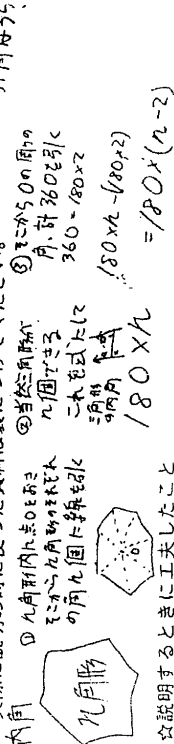 内角
n角形
① n角形内に点Oをおき
そこからn角形のそれぞれ
の角n個に線を引く
O
②当然三角形が
n個できる
これを式にして
三角形
の内角
180×n
③そこからOの周りの
角、計360を引く
360=180×2
180×n-(180×2)
=180×(n-2)
☆説明するときに工夫したこと